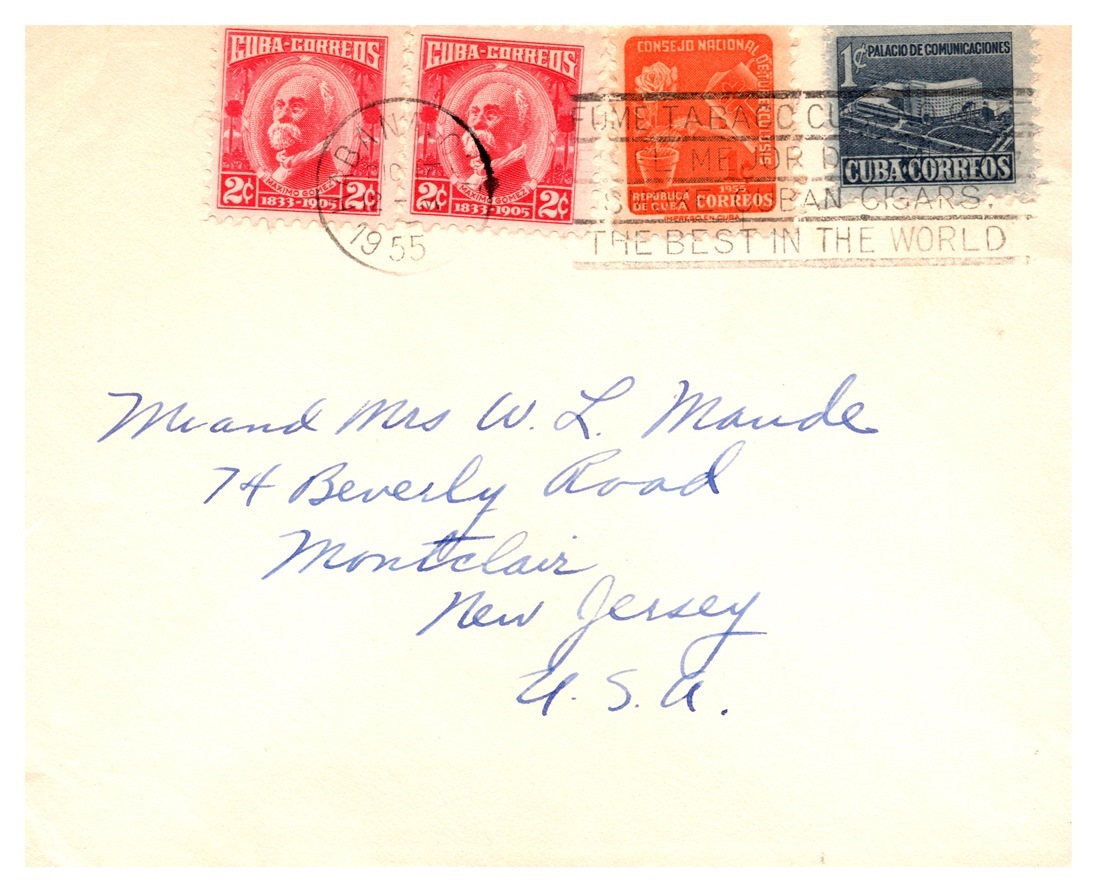 CUBA-CORREOS
2¢ MAXIMO GOMEZ 2¢
1833-1905
CUBA-CORREOS
2¢ MAXIMO GOMEZ 2¢
1833-1905
CONSEJO NACIONAL DE TUBERCULOSIS
1955
REPUBLICA DE CUBA CORREOS
IMPRESO EN CUBA
1¢ PALACIO DE COMUNICACIONES
CUBA·CORREOS
1955
FUME TABACO
MEJOR
CIGARS,
THE BEST IN THE WORLD
Mr and Mrs W. L. Maude
74 Beverly Road
Montclair
New Jersey
U. S. A.